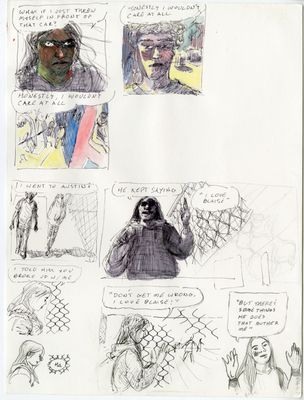 WHAT IF I JUST THREW
MYSELF IN FRONT OF
THAT CAR?
HONESTLY I WOULDN'T
CARE AT ALL.
HONESTLY, I WOULDN'T
CARE AT ALL
I WENT TO AUSTIN'S
HE KEPT SAYING
"I LOVE
BLAISE"
I TOLD HIM YOU
BROKE UP W/ ME
"DON'T GET ME WRONG,
I LOVE BLAISE!"
"BUT THERE'S
SOME THINGS
HE DOES
THAT BOTHER
ME"